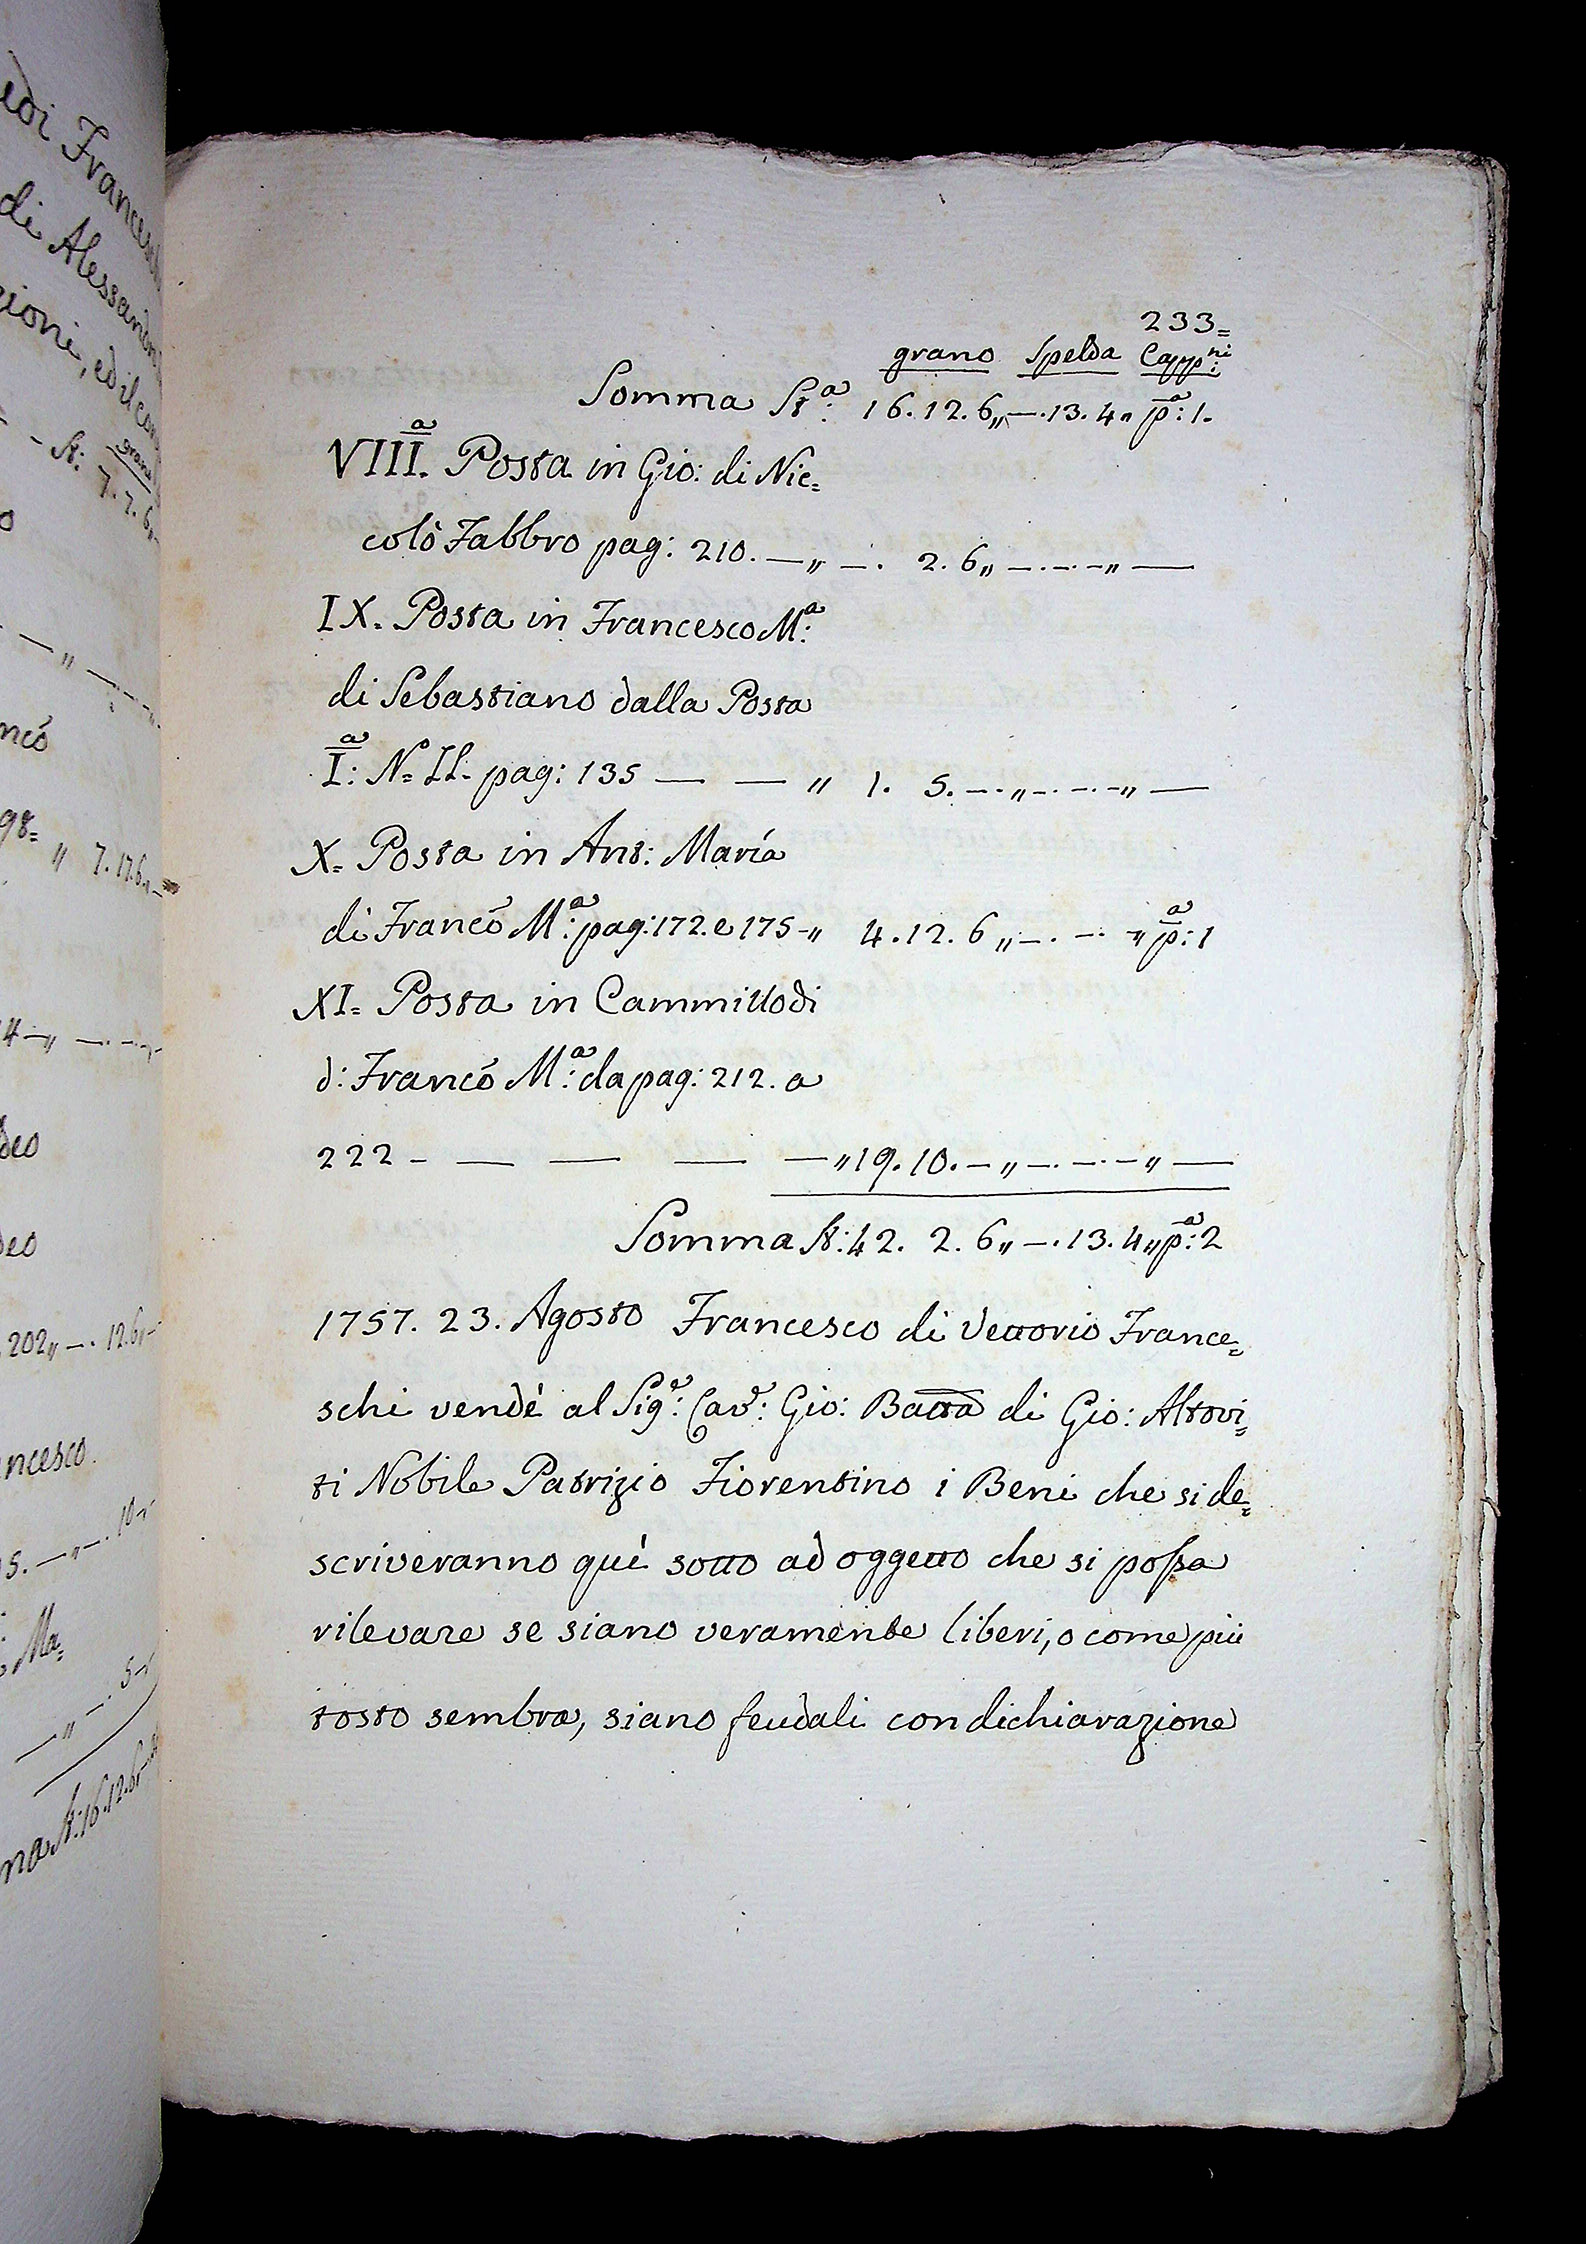 edi Francesco
di Alessandro
zioni, ed il con
grano
- St: 7. 7. 6„
ncó
98= „ 7. 17. 6„ —
4 — „ — . — . —
deo
deo
202„ — . 12. 6„ —
ncesco.
5. — „ — . 10 —
Ma=
— „ — . 5 —
ma St: 16. 12. 6„
233=
grano Spelda Capp.ni
Somma St.a: 16. 12. 6„ — . 13. 4„ p.a: 1.
VIII.a Posta in Gio: di Nic=
colò Fabbro pag: 210. — „ — . 2. 6„ — . — . — „ —
IX. Posta in Francesco M.a:
di Sebastiano dalla Posta
I.a: N.o II. pag: 135 — — „ 1. 5. — . „ — . — . — „ —
X. Posta in Ant: Maria
di Francó M.a: pag: 172. e 175 - „ 4. 12. 6„ — . — . „ p.a: 1
XI. Posta in Cammillo di
d: Francó M.a: da pag: 212. a
222 - — — — — „ 19. 10. — „ — . — . — „ —
Somma St: 42. 2. 6„ — . 13. 4„ p.a: 2
1757. 23. Agosto Francesco di Vettorio France=
schi vendé al Sig.e: Cav.e: Gio: Batta di Gio: Altovi=
ti Nobile Patrizio Fiorentino i Beni che si de=
scriveranno quì sotto ad oggetto che si possa
rilevare se siano veramente liberi, o come più
tosto sembra, siano feudali con dichiarazione